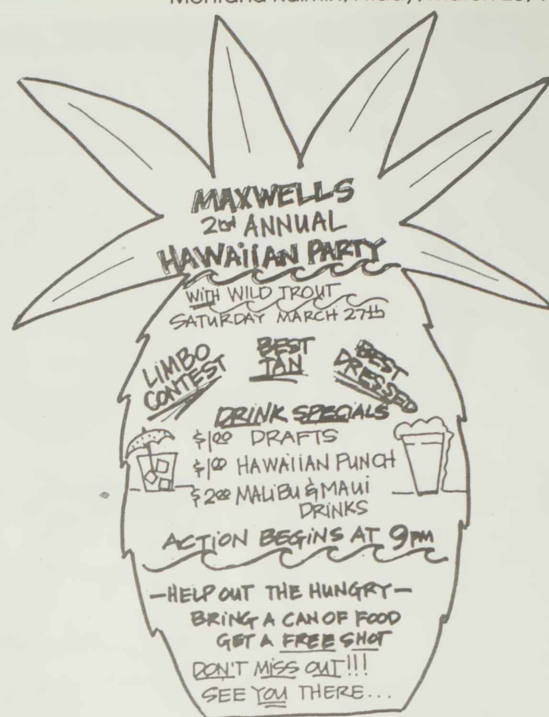 MAXWELLS
2nd ANNUAL
HAWAIIAN PARTY
WITH WILD TROUT
SATURDAY MARCH 27th
LIMBO CONTEST
BEST TAN
BEST DRESSED
DRINK SPECIALS
$1.00 DRAFTS
$1.00 HAWAIIAN PUNCH
$2.00 MALIBU & MAUI
DRINKS
ACTION BEGINS AT 9PM
—HELP OUT THE HUNGRY—
BRING A CAN OF FOOD
GET A FREE SHOT
DON'T MISS OUT!!!
SEE YOU THERE...